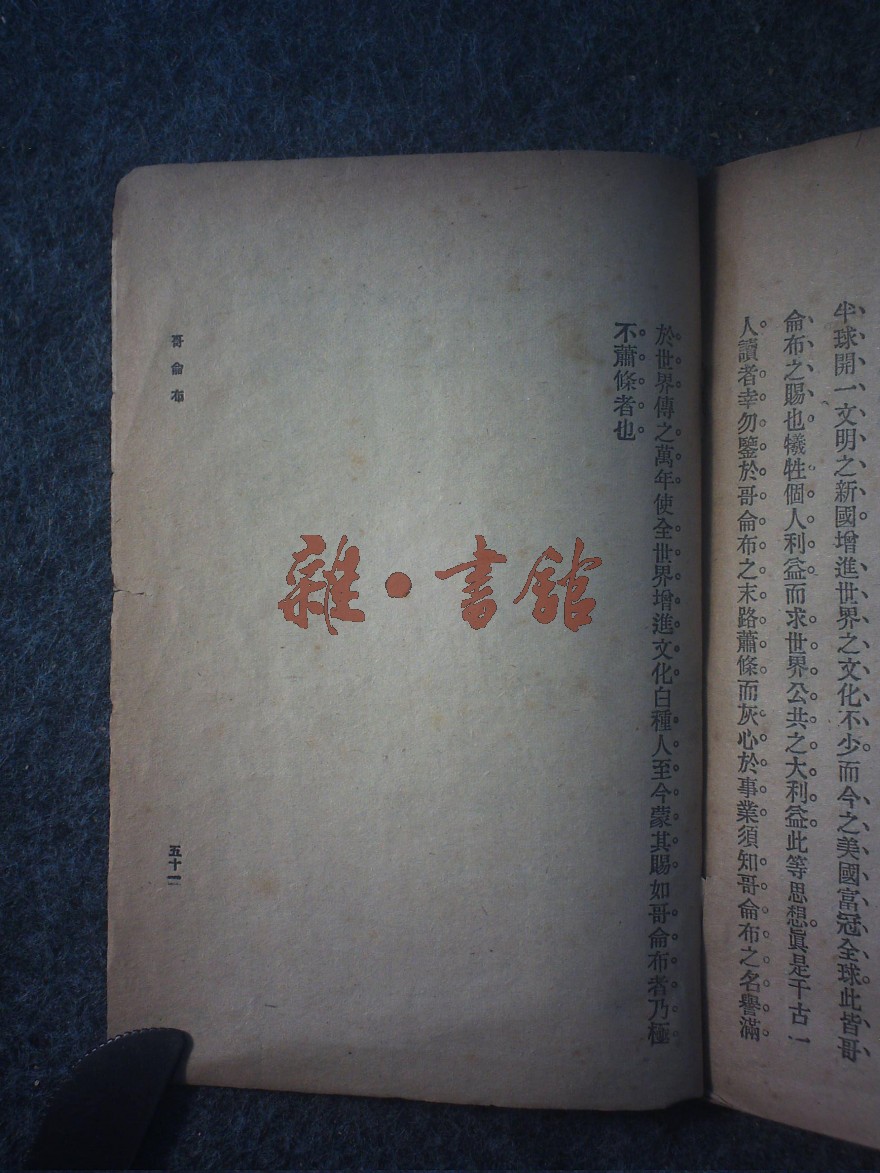 半球開一文明之新國增進世界之文化不少而今之美國富冠全球此皆哥
侖布之賜也犧牲個人利益而求世界公共之大利益此等思想眞是千古一
人讀者幸勿鑒於哥侖布之末路蕭條而灰心於事業須知哥侖布之名譽滿
於世界傳之萬年使全世界增進文化白種人至今蒙其賜如哥侖布者乃極
不蕭條者也
哥侖布
五十一
雜·書館